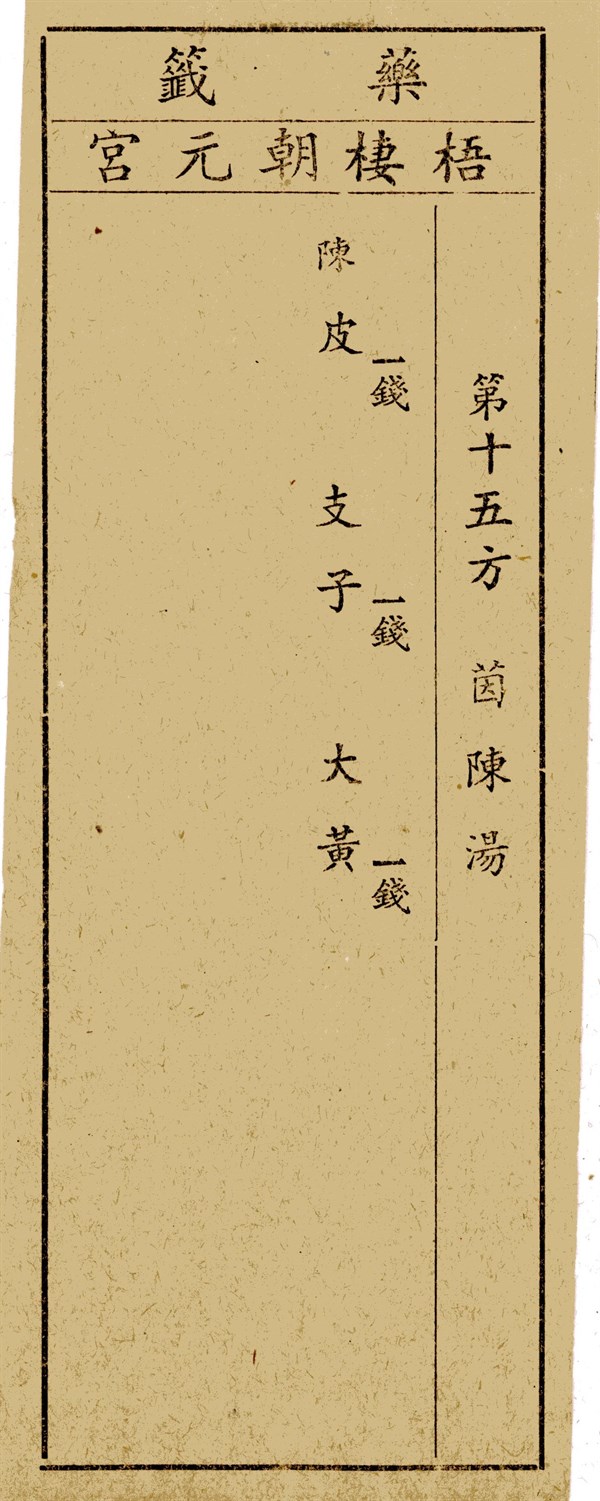 藥籤
梧棲朝元宮
第十五方 茵陳湯
陳皮一錢 支子一錢 大黃一錢